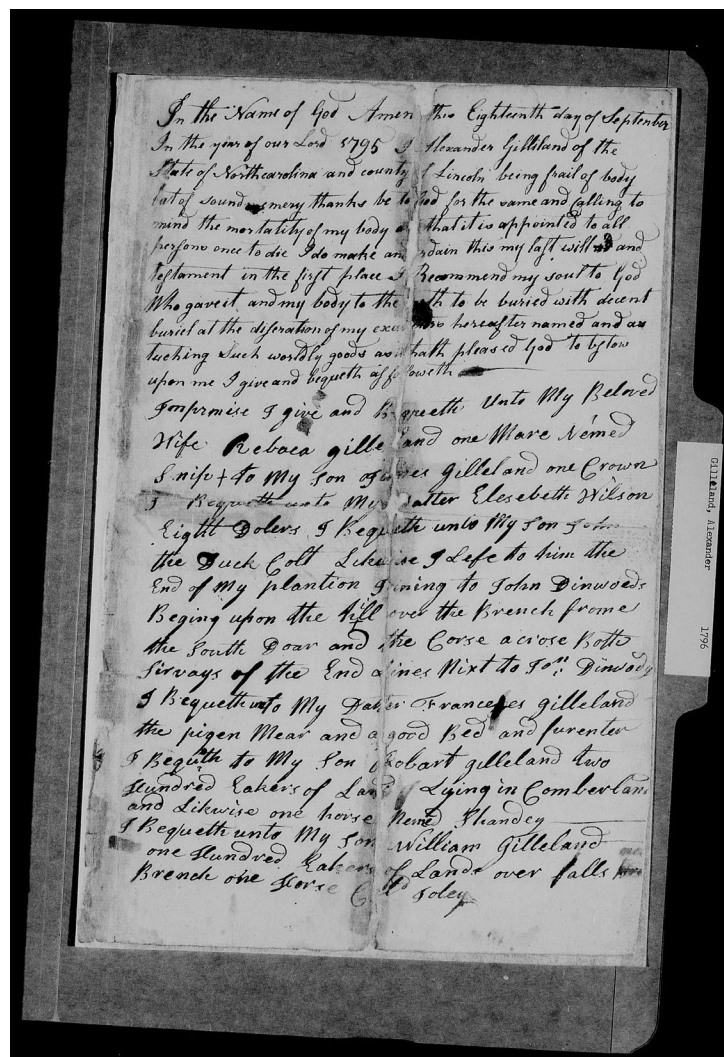 In the Name of God Amen this Eighteenth day of September
In the year of our Lord 1795 I Alexander Gilleland of the
State of Northcarolina and county of Lincoln being frail of body
but of sound memery thanks be to God for the same and Calling to
mind the mortality of my body and that it is appointed to all
persons once to die I do make and ordain this my last will and
testament in the first place I Recommend my soul to God
Who gave it and my body to the earth to be buried with decent
buriel at the diseration of my executors hereafter named and as
tuching Such worldly goods as it hath pleased God to bystow
upon me I give and bequeth as followeth
Imprmise I give and Bequeeth Unto My Beloved
Wife Rebaca gilleland one Mare Nemed
Snip + to My Son James Gilleland one Crown
I Bequeth unto My Datter Elesebeth Wilson
Eight Dolers I Bequeth unto My Son John
the Duck Colt Likwise I Lefe to him the
End of My plantion Joining to John Dinwoeds
Beging upon the hill over the Brench frome
the South Doar and the Corse acrose Both
Sirvays of the End Lines Nixt to Jon: Dinwody
I Bequeth unto My Datter Franceses gilleland
the pigen Mear and a good Bed and furenter
I Bequth to My Son Robart gilleland two
Hundred Eakers of Land Lying in Comberland
and Likwise one horse Nemd Shandey
I Bequeth unto My Son William Gilleland
one Hundred Eakers of Lands over falls
Brench one Horse Cold Foley
Gilleland, Alexander 1796